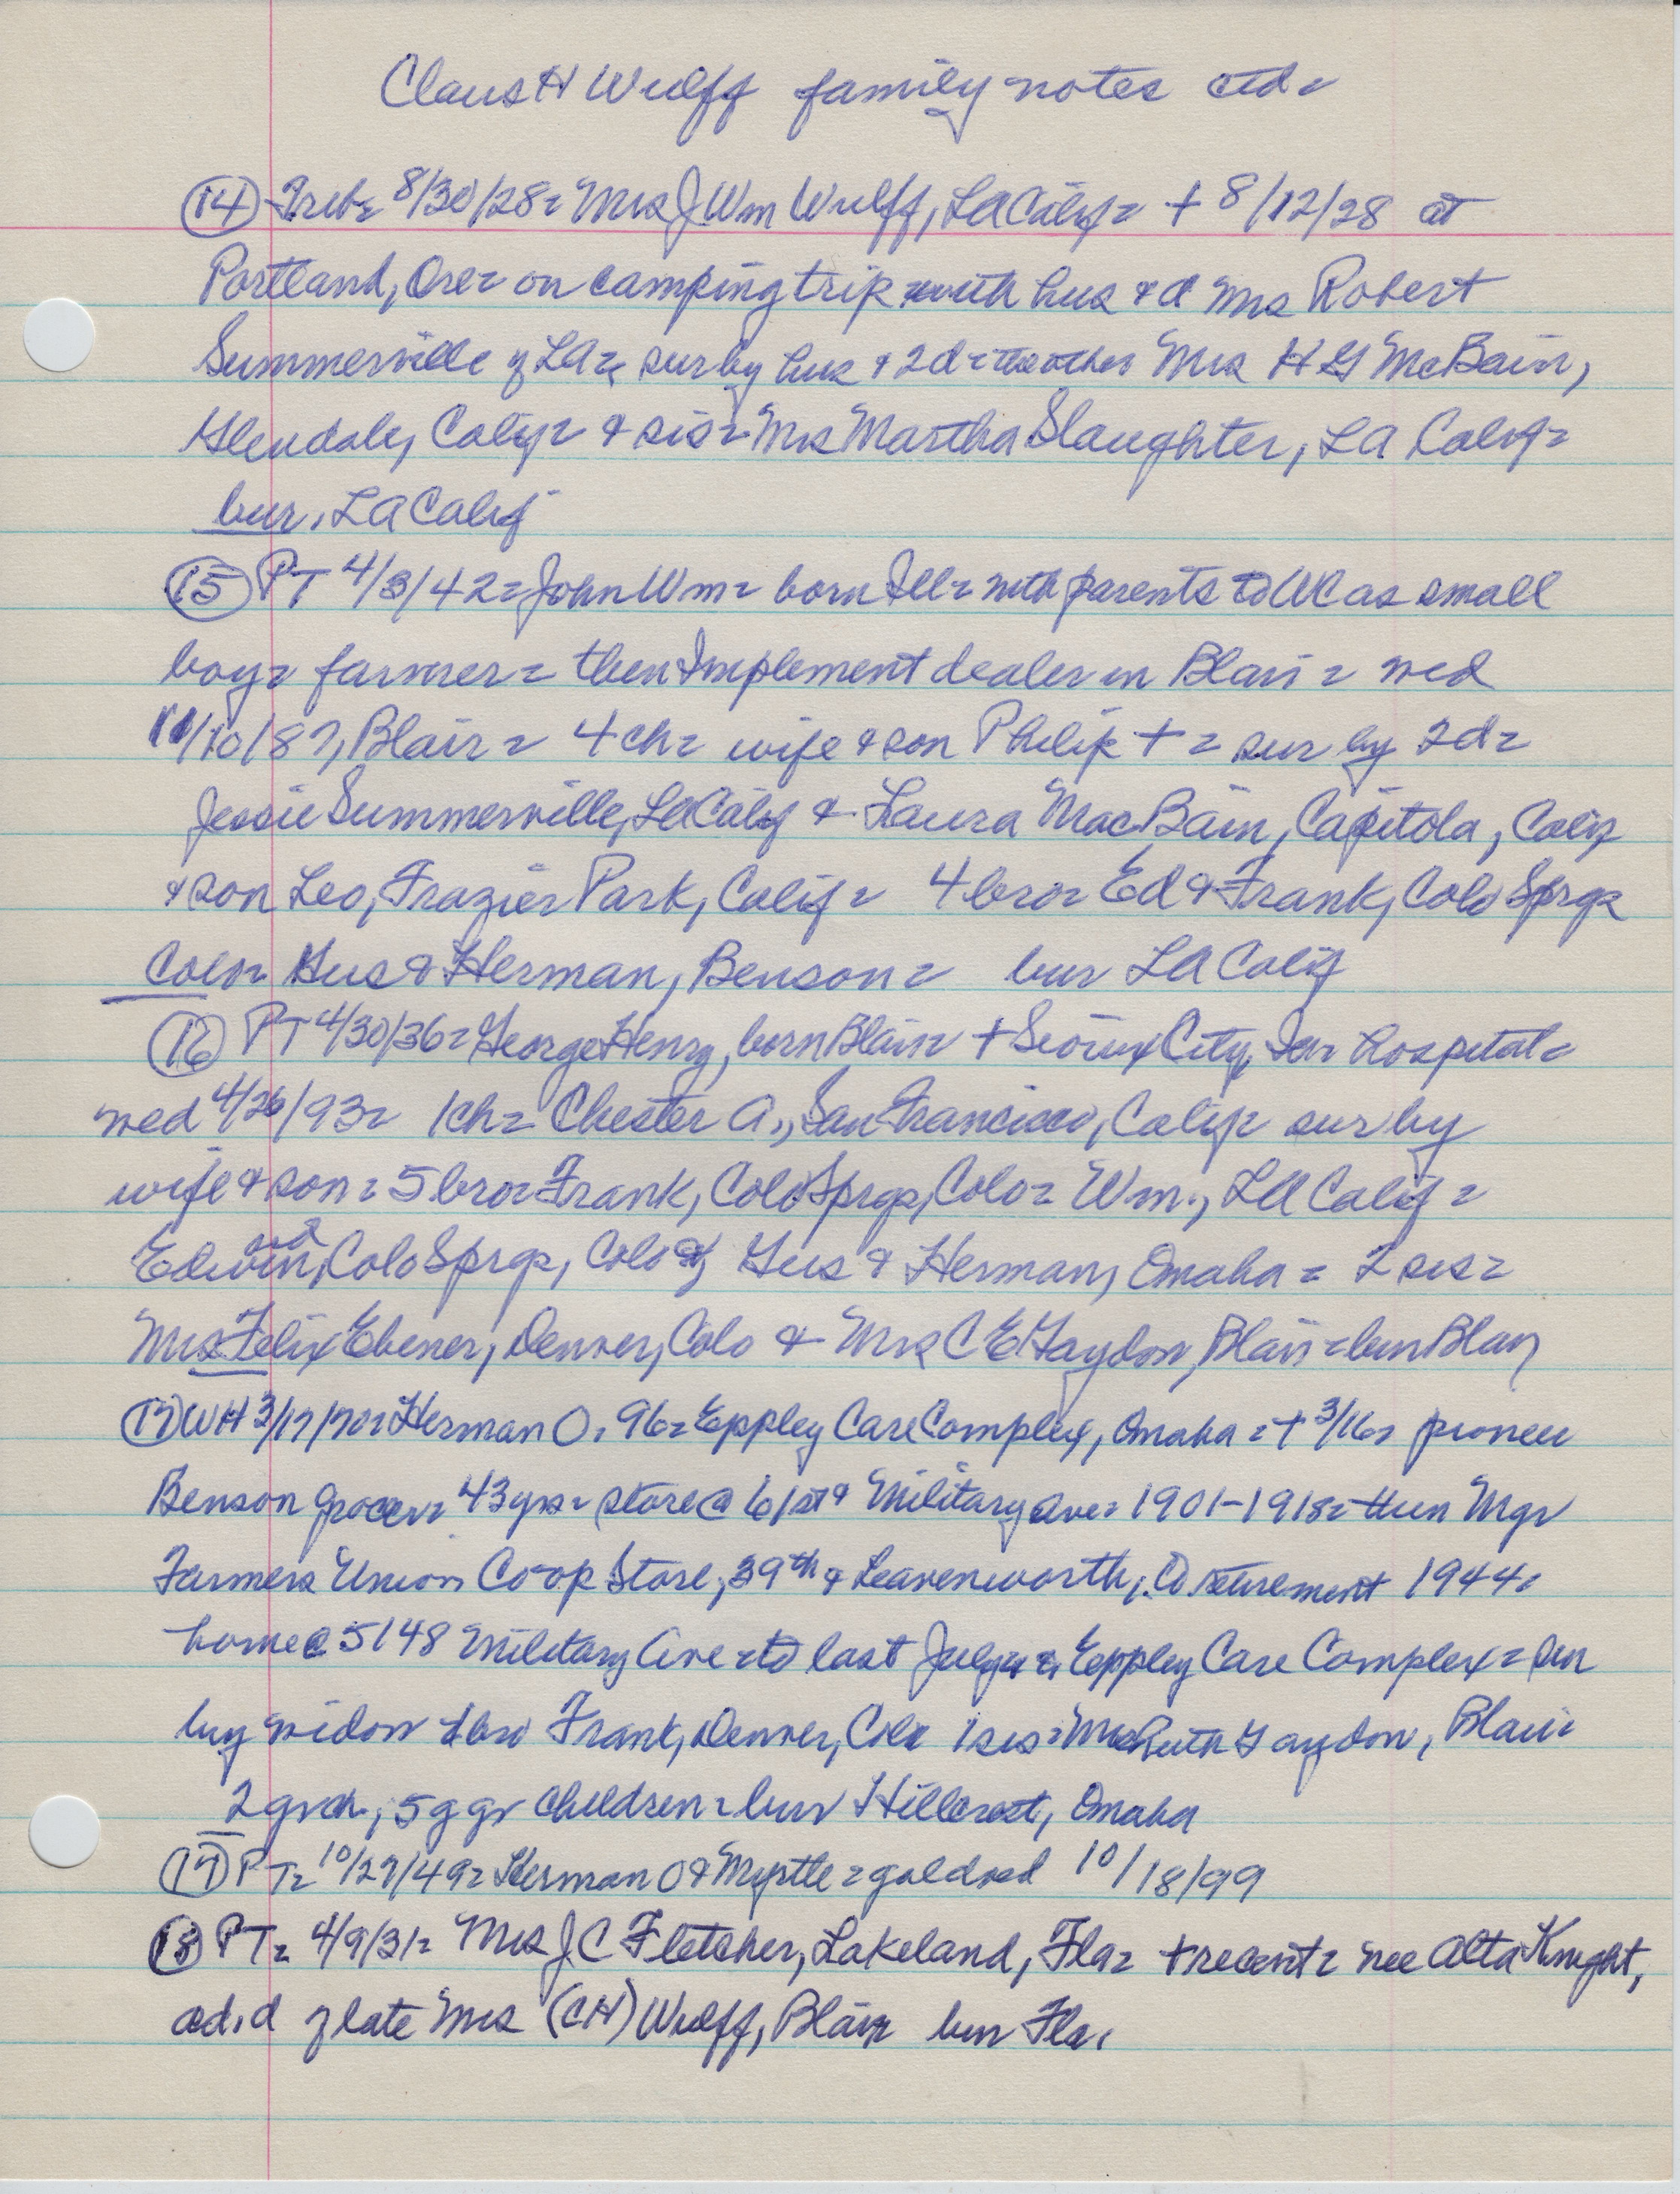 Claus H Wulff family notes ctd =
(14) Trib = 8/30/28 = Mrs J Wm Wulff, LA Calif = + 8/12/28 at
Portland, Ore = on camping trip with hus & d Mrs Robert
Summerville of LA = sur by hus & 2 d = the other Mrs H G McBain,
Glendale, Calif = & sis = Mrs Martha Slaughter, LA Calif =
bur. LA Calif
(15) PT 4/3/42 = John Wm = born Ill = with parents to WC as small
boy = farmer = then Implement dealer in Blair = wed
11/10/87, Blair = 4 ch = wife & son Philip + = sur by 2 d =
Jessie Summerville, LA Calif & Laura MacBain, Capitola, Calif
& son Leo, Frazier Park, Calif = 4 bro = Ed & Frank, Colo Sprgs
Colo = Gus & Herman, Benson = bur LA Calif
(16) PT 4/30/36 = George Henry, born Blair = + Sioux City, Ia = hospital =
wed 4/26/93 = 1 ch = Chester A., San Francisco, Calif = sur by
wife & son = 5 bro = Frank, Colo Sprgs, Colo = Wm., LA Calif =
Edwin, Colo Sprgs, Colo & Gus & Herman, Omaha = 2 sis =
Mrs Felix Ebener, Denver, Colo & Mrs C E Gaydon, Blair = bur Blair
(17) WH 3/17/70 = Herman O. 96 = Eppley Care Complex, Omaha = + 3/16 = pioneer
Benson grocer = 43 yrs = store @ 61st & Military Ave = 1901-1918 = then Mgr
Farmers Union Co-op Store, 39th & Leavenworth, to retirement 1944 =
home @ 5148 Military Ave = to last July = Eppley Care Complex = sur
by widow 1 bro Frank, Denver, Colo 1 sis = Mrs Ruth Gaydon, Blair =
2 grch, 5 g gr children = bur Hillcrest, Omaha
(17) PT = 10/27/49 = Herman O & Myrtle = gold wed 10/18/99
(18) PT = 4/9/31 = Mrs J C Fletcher, Lakeland, Fla = + recent = nee Alta Knight,
ad. d of late Mrs (CH) Wulff, Blair bur Fla.